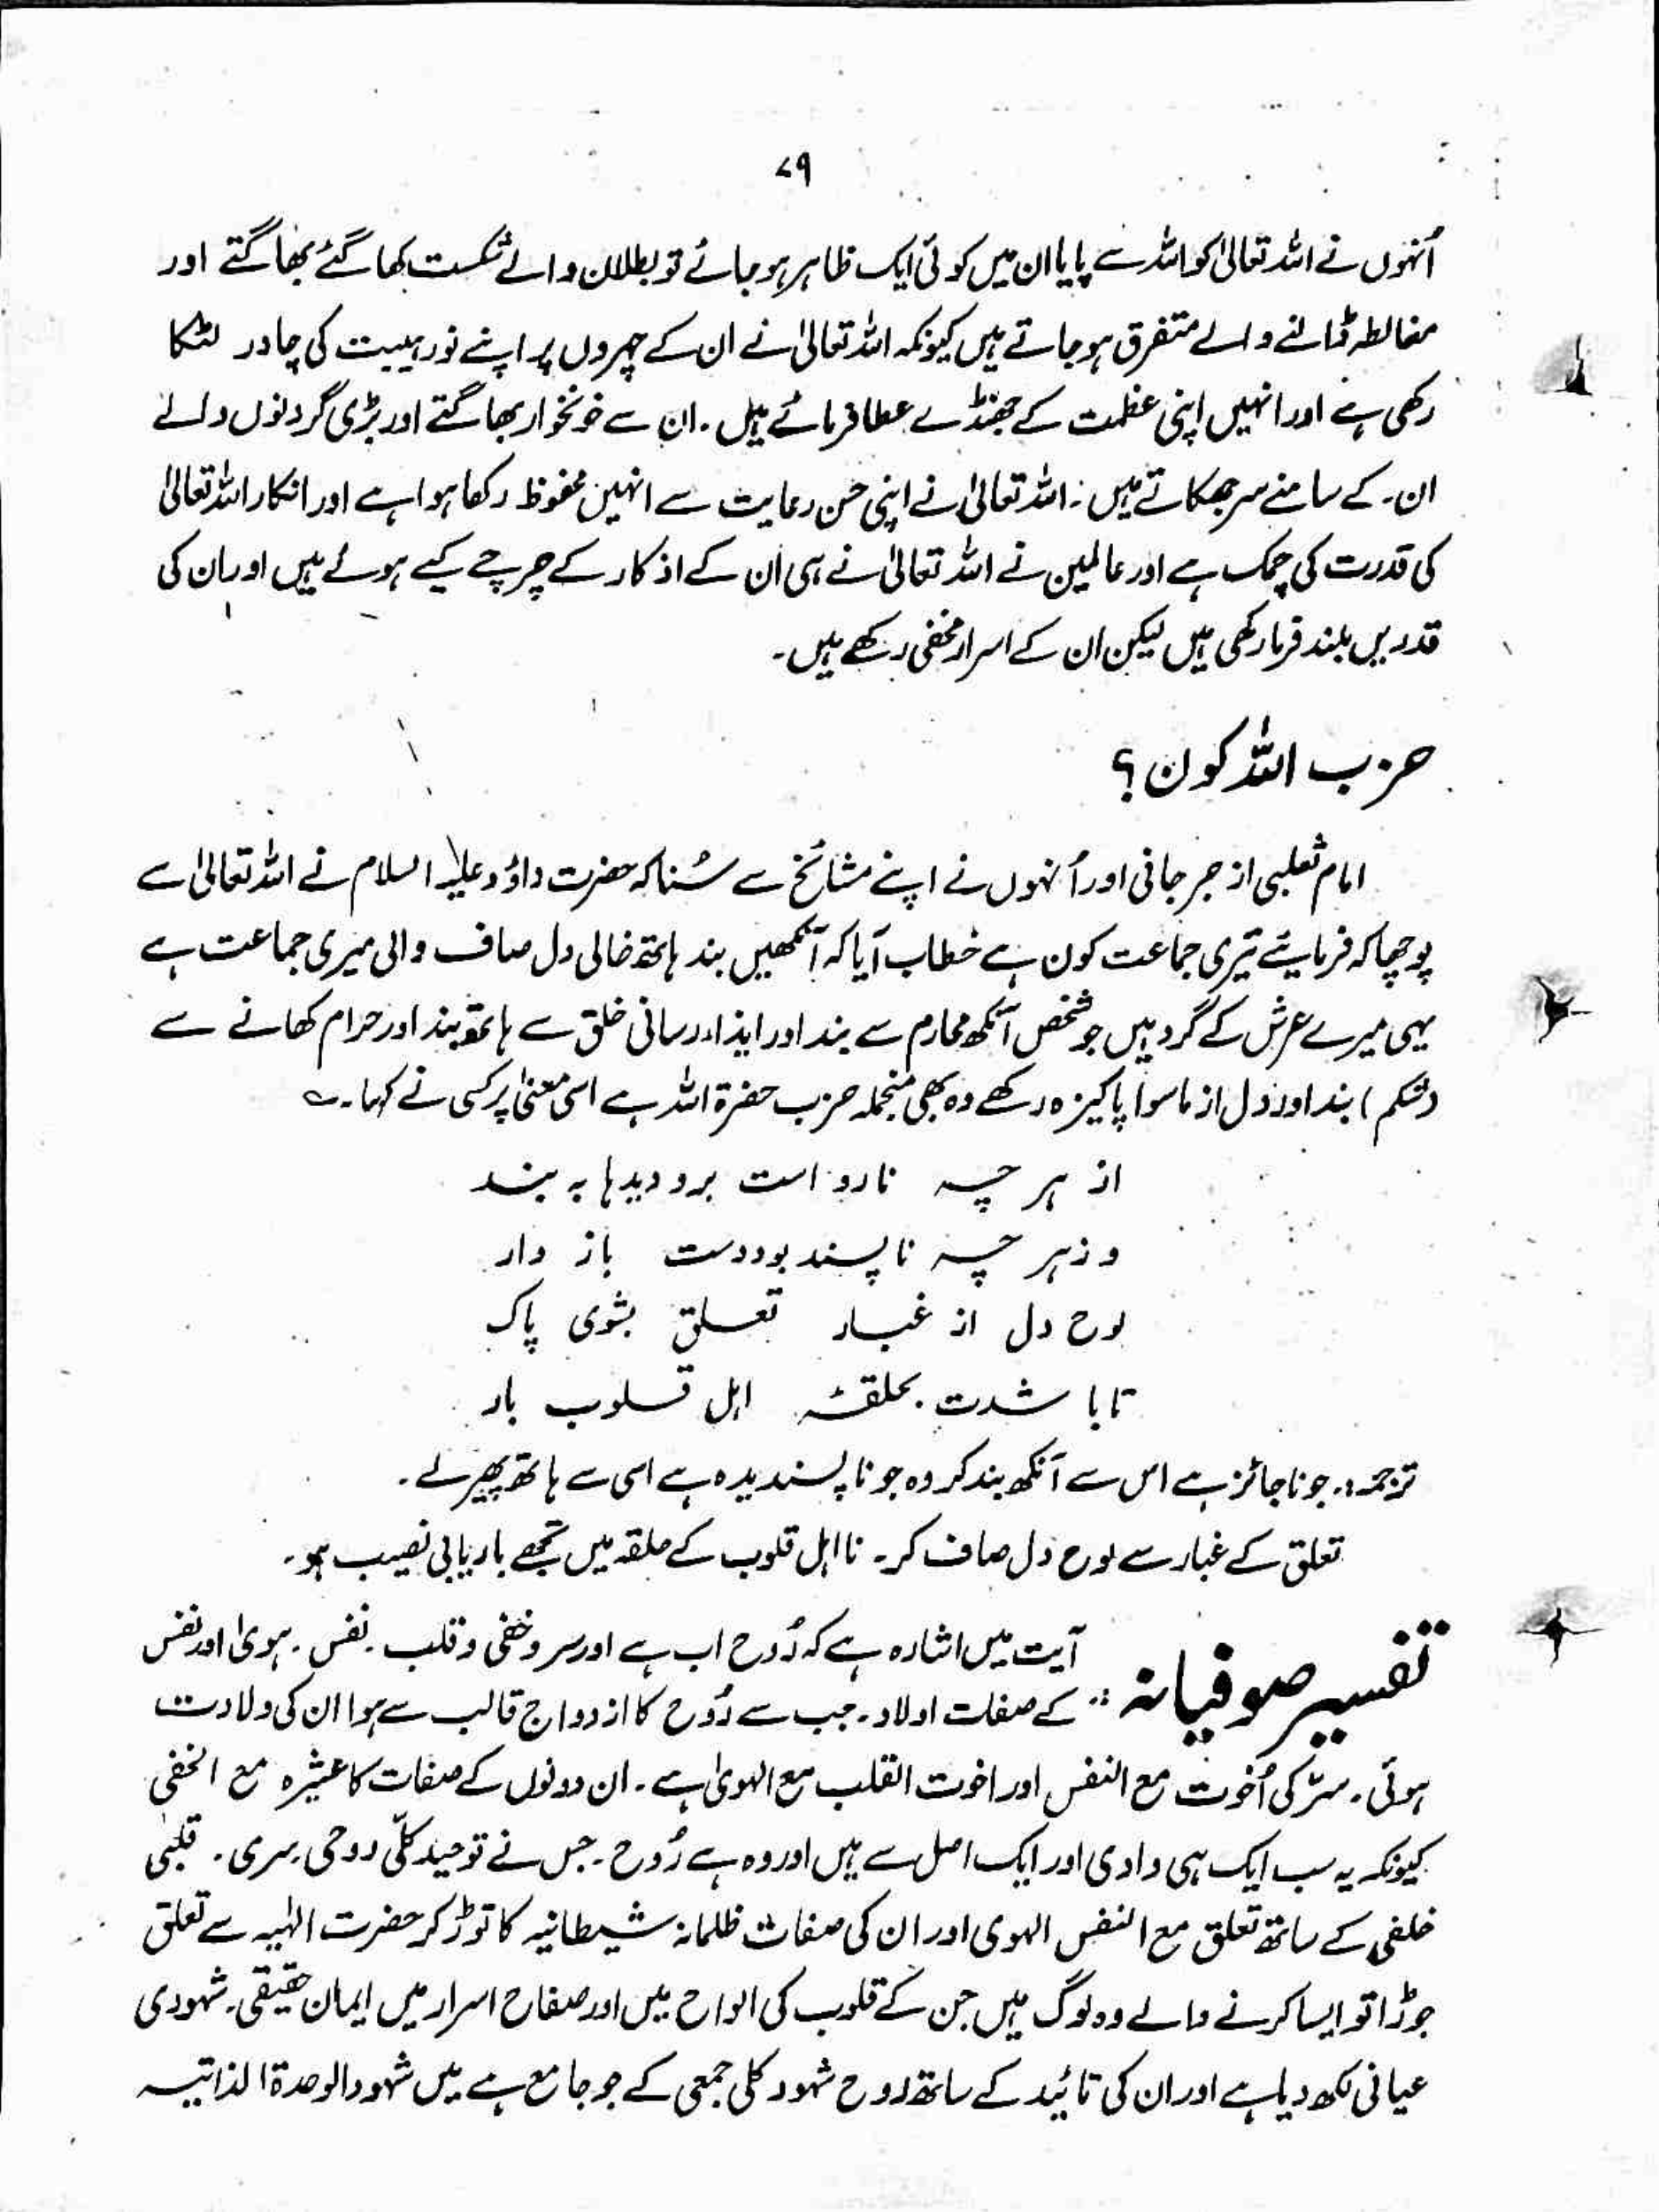 ۷۹
اُنہوں نے اللہ تعالیٰ کو اللہ سے پایا ان میں کوئی ایک ظاہر ہو جائے تو بطلان والے شکست کھا گئے بھاگتے اور
مغالطہ ڈالنے والے متفرق ہو جاتے ہیں کیونکہ اللہ تعالیٰ نے ان کے چہروں پر اپنے نور ہیبت کی چادر لٹکا
رکھی ہے اور انہیں اپنی عظمت کے جھنڈے عطا فرمائے ہیں۔ ان سے خونخوار بھاگتے اور بڑی گردنوں والے
ان کے سامنے سر جھکاتے ہیں۔ اللہ تعالیٰ نے اپنی حسن رعایت سے انہیں محفوظ رکھا ہوا ہے اور انکار اللہ تعالیٰ
کی قدرت کی چمک ہے اور عالمین نے اللہ تعالیٰ نے ہی ان کے اذکار کے چرچے کیے ہوئے ہیں اور ان کی
قدریں بلند فرما رکھی ہیں لیکن ان کے اسرار مخفی رکھے ہیں۔
حزب اللہ کون؟
امام ثعلبی از جرجانی اور اُنہوں نے اپنے مشائخ سے سُنا کہ حضرت داؤد علیہ السلام نے اللہ تعالیٰ سے
پوچھا کہ فرمایئے تیری جماعت کون ہے خطاب آیا کہ آنکھیں بند ہاتھ خالی دل صاف والی میری جماعت ہے
یہی میرے عرش کے گرد ہیں جو شخص آنکھ محارم سے بند اور ایذاء رسانی خلق سے ہاتھ بند اور حرام کھانے سے
(شکم) بند اور دل از ماسوا پاکیزہ رکھے وہ بھی منجملہ حزب حضرۃ اللہ ہے اسی معنیٰ پر کسی نے کہا۔ ے
از ہر چہ ناروا است برو دیدہا بہ بند
وز ہر چہ ناپسند بود دست باز دار
لوح دل از غبار تعلق بشوی پاک
تا با شدت بحلقۂ اہل قلوب بار
ترجمہ:۔ جو ناجائز ہے اس سے آنکھ بند کر وہ جو ناپسندیدہ ہے اسی سے ہاتھ پھیر لے۔
تعلق کے غبار سے لوح دل صاف کر۔ تا اہل قلوب کے حلقہ میں تجھے باریابی نصیب ہو۔
تفسیر صوفیانہ :: آیت میں اشارہ ہے کہ رُوح اب ہے اور سر و خفی و قلب۔ نفس۔ ہویٰ اور نفس
کے صفات اولاد۔ جب سے رُوح کا ازدواج قالب سے ہوا ان کی ولادت
ہوئی۔ سرّ کی اُخوت مع النفس اور اخوت القلب مع الہویٰ ہے۔ ان دونوں کے صفات کا عشیرہ مع الخفی
کیونکہ یہ سب ایک ہی وادی اور ایک اصل سے ہیں اور وہ ہے رُوح۔ جس نے توحید کلّی روحی سری۔ قلبی
خلفی کے ساتھ تعلق مع النفس الہوی اور ان کی صفات ظلمانہ شیطانیہ کا توڑ کر حضرت الٰہیہ سے تعلق
جوڑا تو ایسا کرنے والے وہ لوگ ہیں جن کے قلوب کی الواح میں اور صفاح اسرار میں ایمان حقیقی۔ شہودی
عیانی لکھ دیا ہے اور ان کی تائید کے ساتھ روح شہود کلی جمعی کے جو جامع ہے میں شہود الوحدۃ الذاتیہ